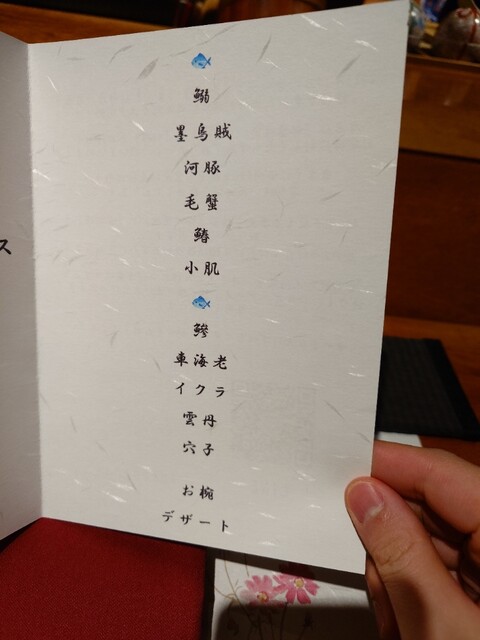 鰯
墨烏賊
河豚
毛蟹
鰆
小肌
鰺
車海老
イクラ
雲丹
穴子
お椀
デザート
ス